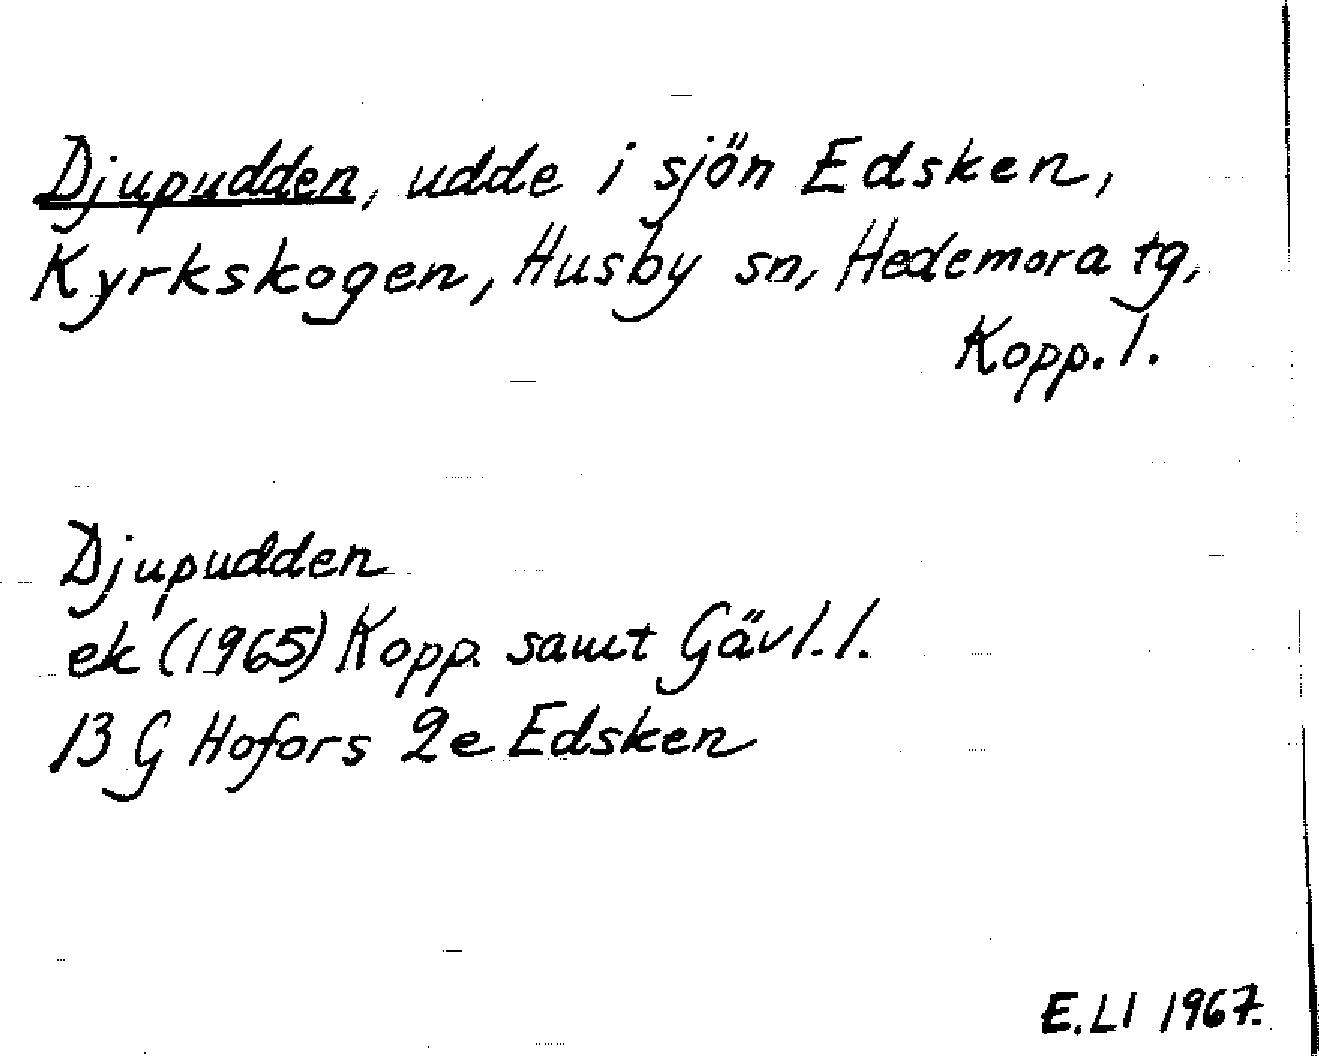 Djupudden, udde i sjön Edsken,
Kyrkskogen, Husby sn, Hedemora tg,
Kopp. l.
Djupudden
ek (1965) Kopp. samt Gävl. l.
13 G Hofors 2e Edsken
E. LI 1967.